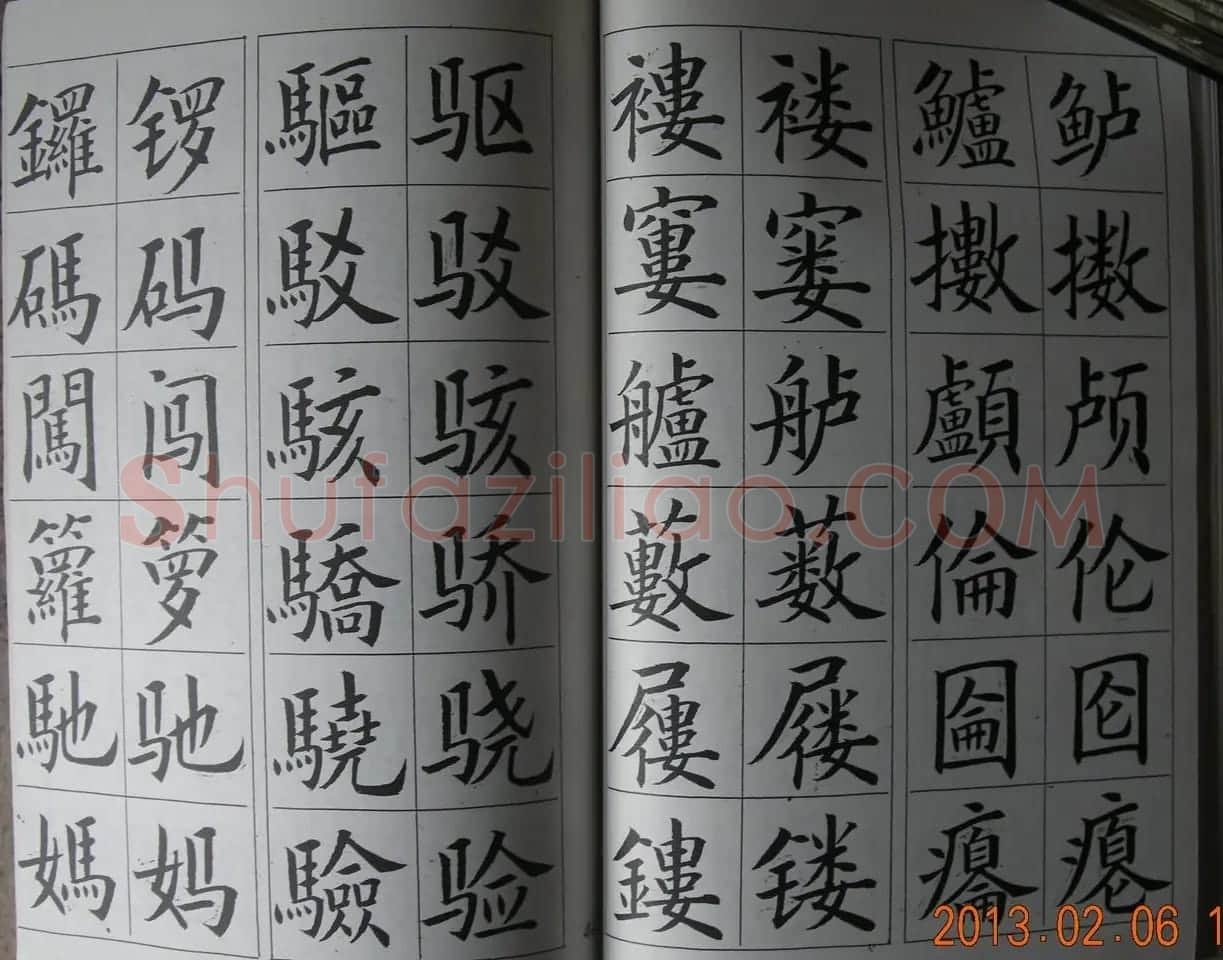 鑼 锣 驅 驱
碼 码 駁 驳
闖 闯 駭 骇
籮 箩 驕 骄
馳 驰 驍 骁
媽 妈 驗 验
褸 褛 鱸 鲈
窶 窭 擻 擞
艫 舻 顱 颅
藪 薮 倫 伦
屨 屦 圇 囵
鏤 镂 癟 瘪
Shufaziliao.COM
2013.02.06 1